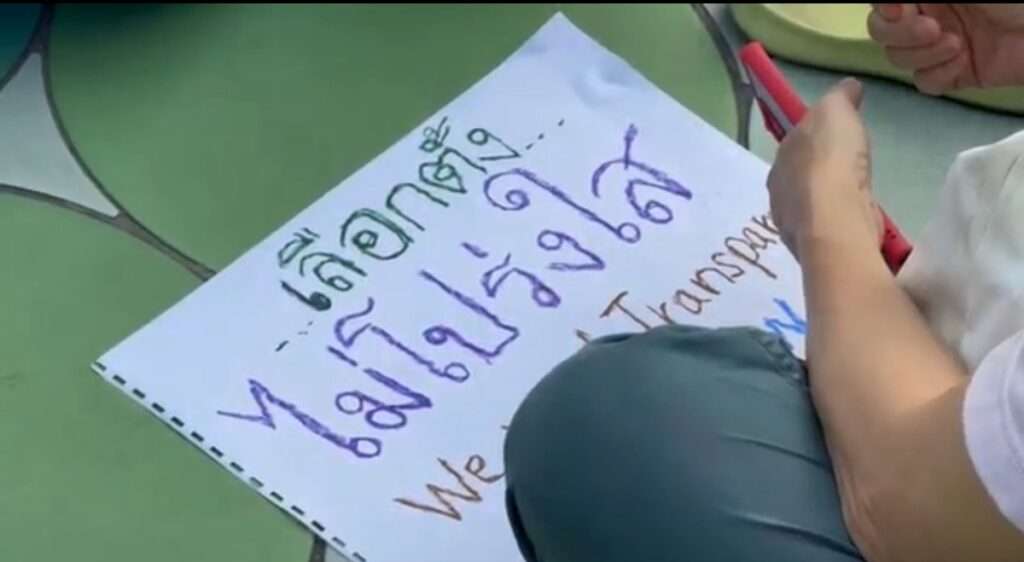 ...เลือกตั้ง...
ไม่โปร่งใส
We Transpar